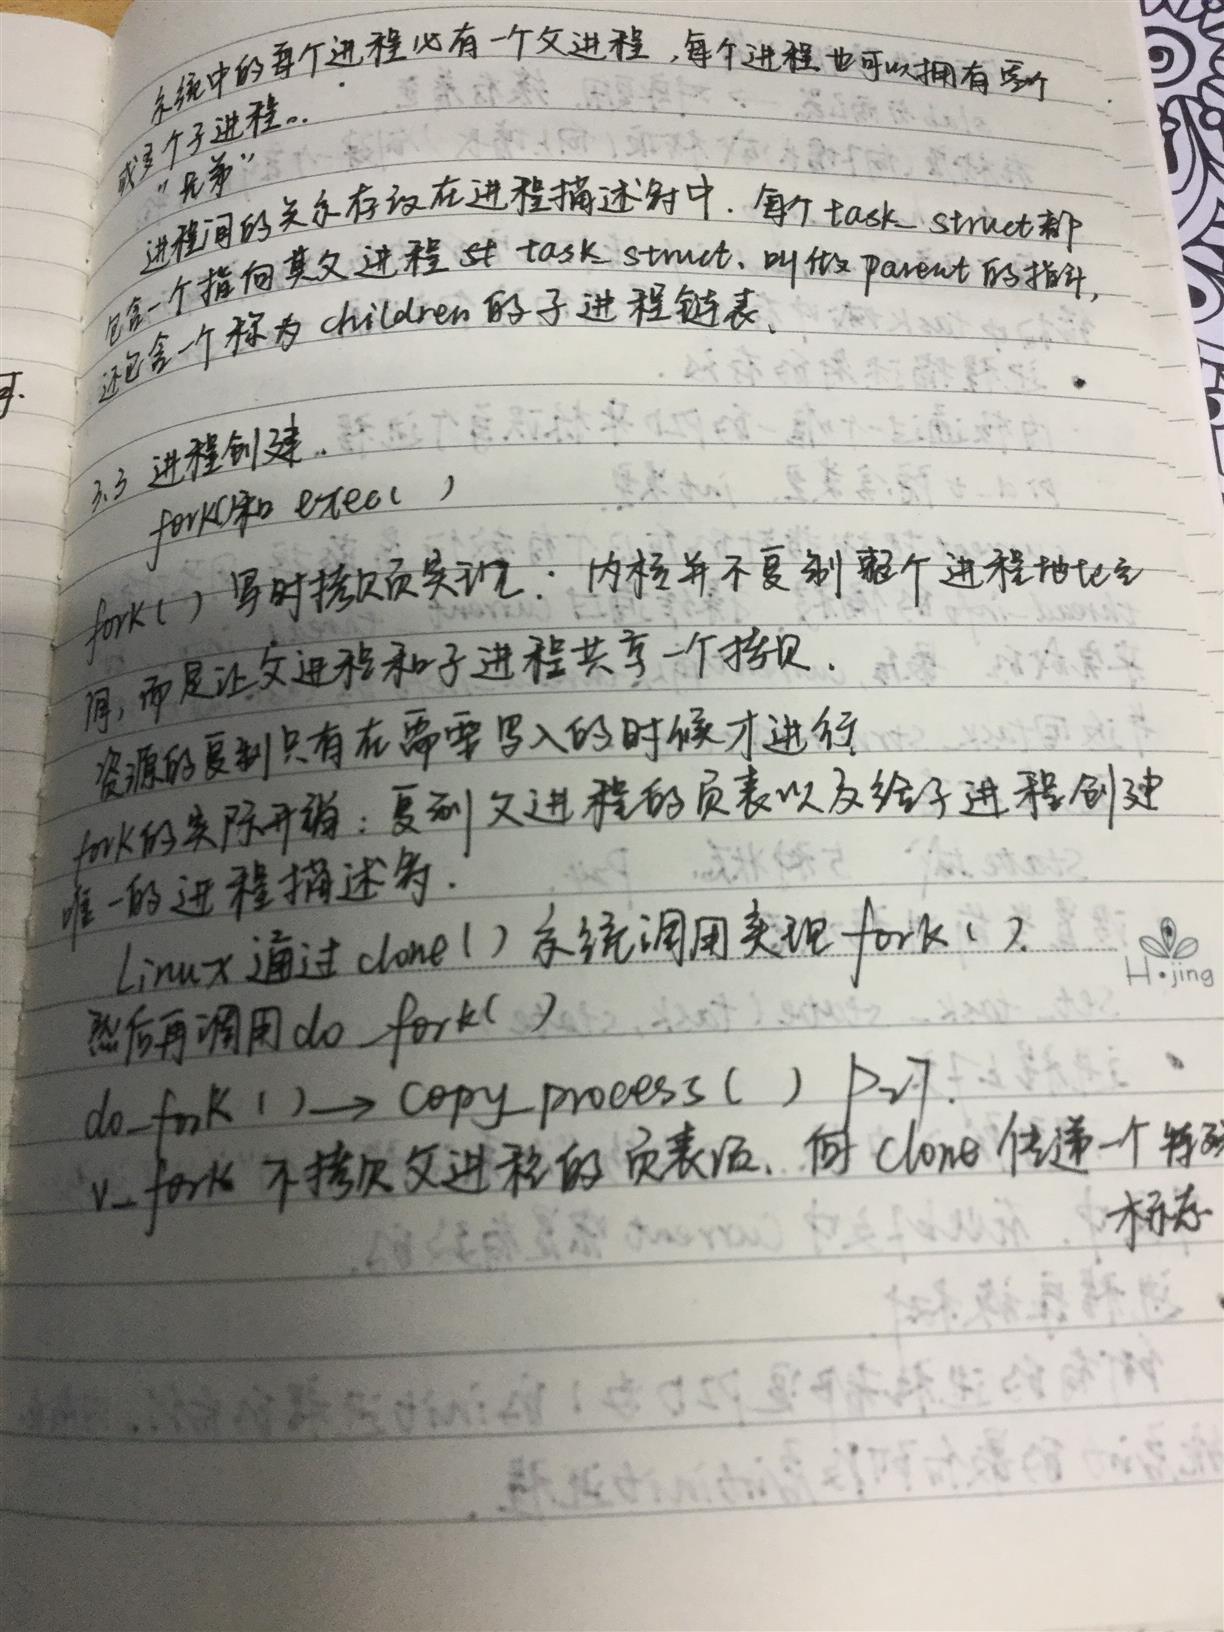 系统中的每个进程必有一个父进程，每个进程也可以拥有零个
或多个子进程。
“兄弟”
进程间的关系存放在进程描述符中．每个task_struct都
包含一个指向其父进程 task_struct、叫做parent的指针，
还包含一个称为children的子进程链表、
3.3 进程创建．
fork()和 exec()
fork()写时拷贝页实现：内核并不复制整个进程地址空
间，而是让父进程和子进程共享一个拷贝．
资源的复制只有在需要写入的时候才进行
fork的实际开销：复制父进程的页表以及给子进程创建
唯一的进程描述符．
Linux通过clone()系统调用实现fork()．
然后再调用do_fork()
do_fork()→copy_process() P27．
v_fork 不拷贝父进程的页表项、向clone传递一个特殊
标志
H·jing